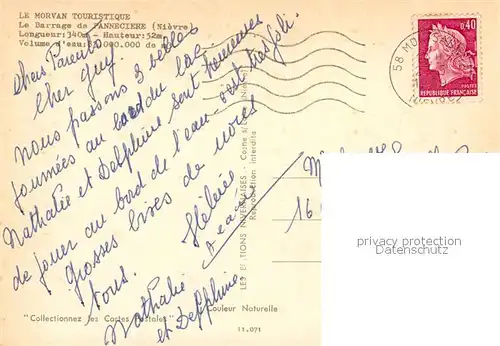 LE MORVAN TOURISTIQUE
Le Barrage de PANNECIERE (Nièvre)
Longueur:340m - Hauteur:52m
Volume d'eau: 000.000 de m
Chers Parents
Cher Guy.
Nous passons 3 belles
journées au bord du lac
Nathalie et Delphine sont heureuses
de jouer au bord de l'eau. c'est très joli.
Grosses bises de nous
tous.
Hélène
Jean
Nathalie
et Delphine
"Collectionnez les Cartes Postales"
Couleur Naturelle
11.071
LES EDITIONS NIVERNAISES - Cosne s/Loire (Nièvre)
Reproduction interdite
58 MO
0,40
POSTES
REPUBLIQUE FRANÇAISE
M
16
privacy protection
Datenschutz